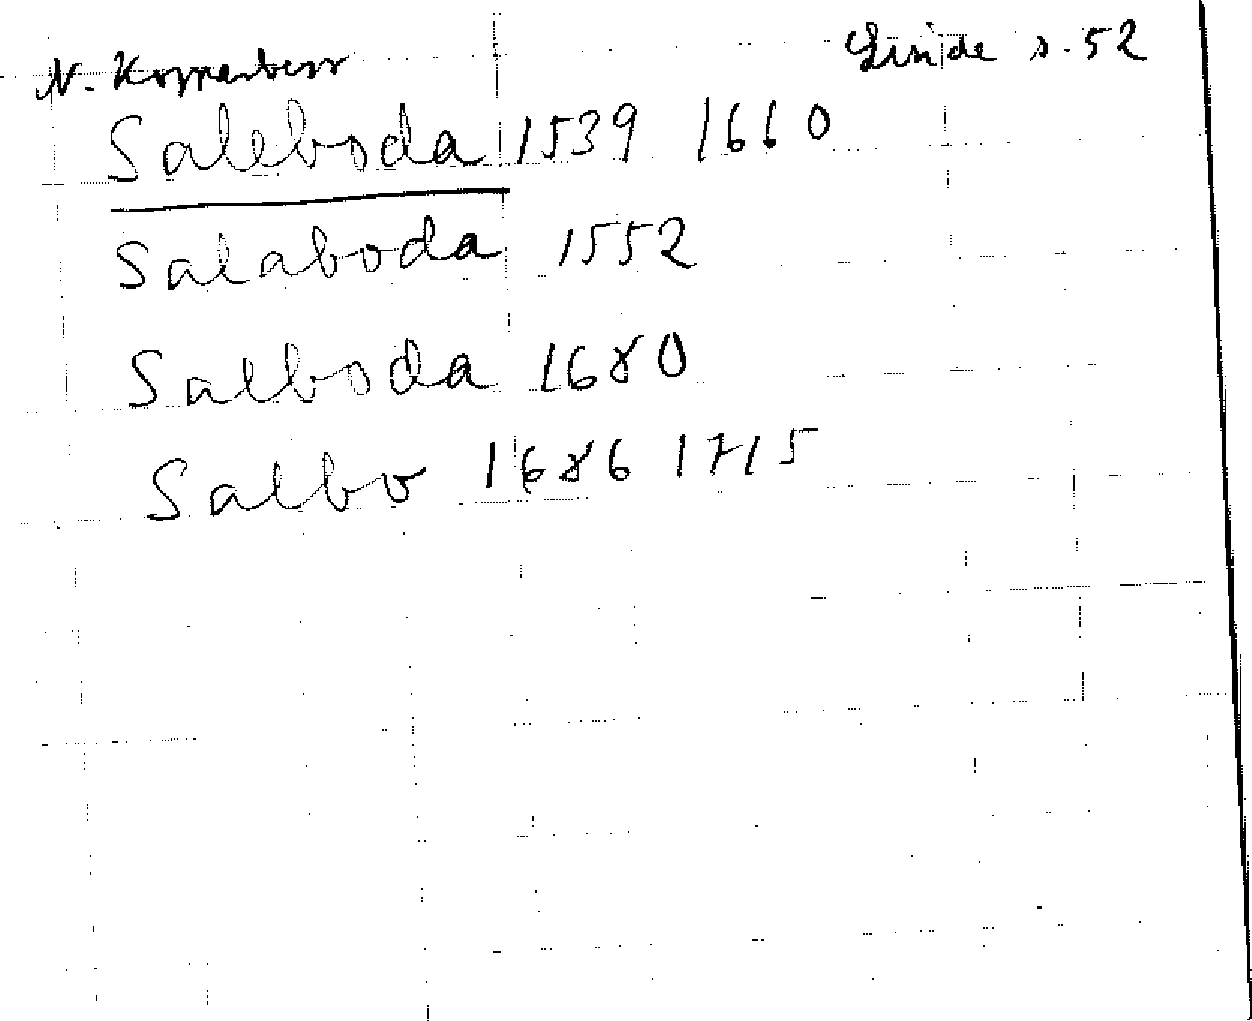 N. Kopparberg Linde s. 52
Saleboda 1539 1660
Salaboda 1552
Salboda 1680
Salbo 1686 1715